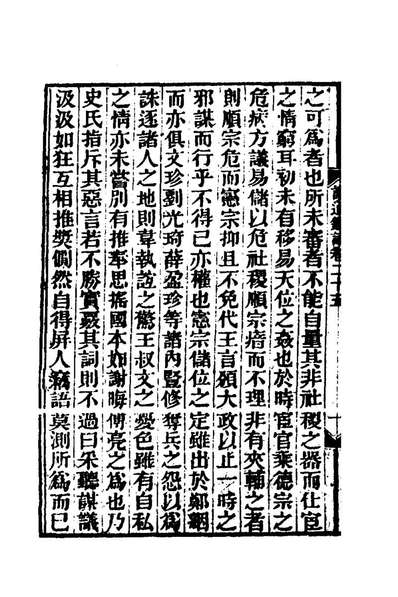 讀通鑑論卷二十五
之可爲者也所未審者不能自量其非社稷之器而仕宦
之情窮耳初未有移易天位之姦也於時宦官乘德宗之
危病方議易儲以危社稷順宗瘖而不理非有夾輔之者
則順宗危而憲宗抑且不免代王言頒大政以止一時之
邪謀而行乎不得已亦權也憲宗儲位之定雖出於鄭絪
而亦俱文珍劉光琦薛盈珍等諸內豎修奪兵之怨以爲
誅逐諸人之地則韋執誼之驚王叔文之憂色雖有自私
之情亦未嘗別有推奉思搖國本如謝晦傅亮之爲也乃
史氏指斥其惡言若不勝實覈其詞則不過曰采聽謀議
汲汲如狂互相推奬僩然自得屏人竊語莫測所爲而已